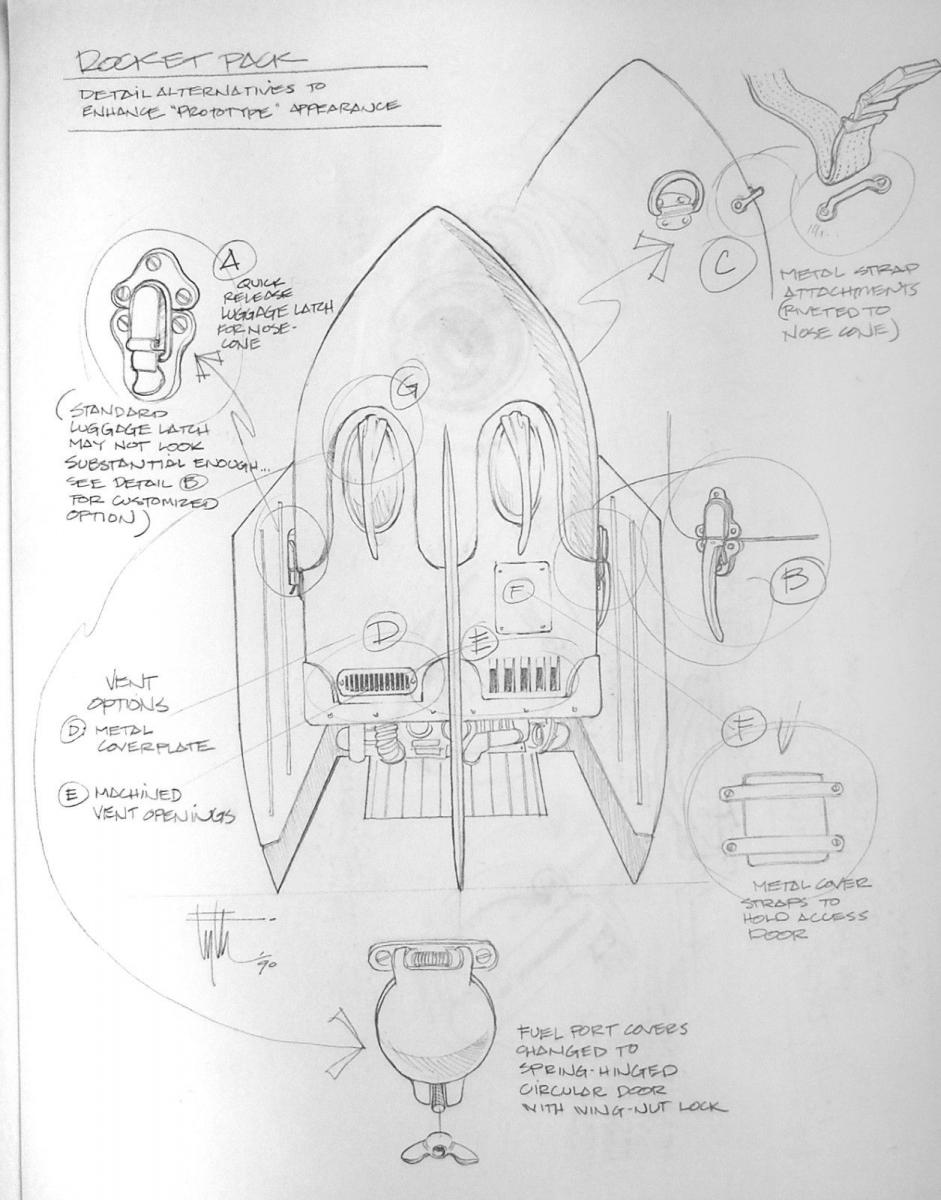 ROCKET PACK
DETAIL ALTERNATIVES TO
ENHANCE "PROTOTYPE" APPEARANCE
A
QUICK
RELEASE
LUGGAGE LATCH
FOR NOSE-
CONE
(STANDARD
LUGGAGE LATCH
MAY NOT LOOK
SUBSTANTIAL ENOUGH...
SEE DETAIL B
FOR CUSTOMIZED
OPTION)
C
METAL STRAP
ATTACHMENTS
(RIVETED TO
NOSE CONE)
G
B
F
D
E
VENT
OPTIONS
D METAL
COVERPLATE
E MACHINED
VENT OPENINGS
F
METAL COVER
STRAPS TO
HOLD ACCESS
DOOR
'90
FUEL PORT COVERS
CHANGED TO
SPRING-HINGED
CIRCULAR DOOR
WITH WING-NUT LOCK